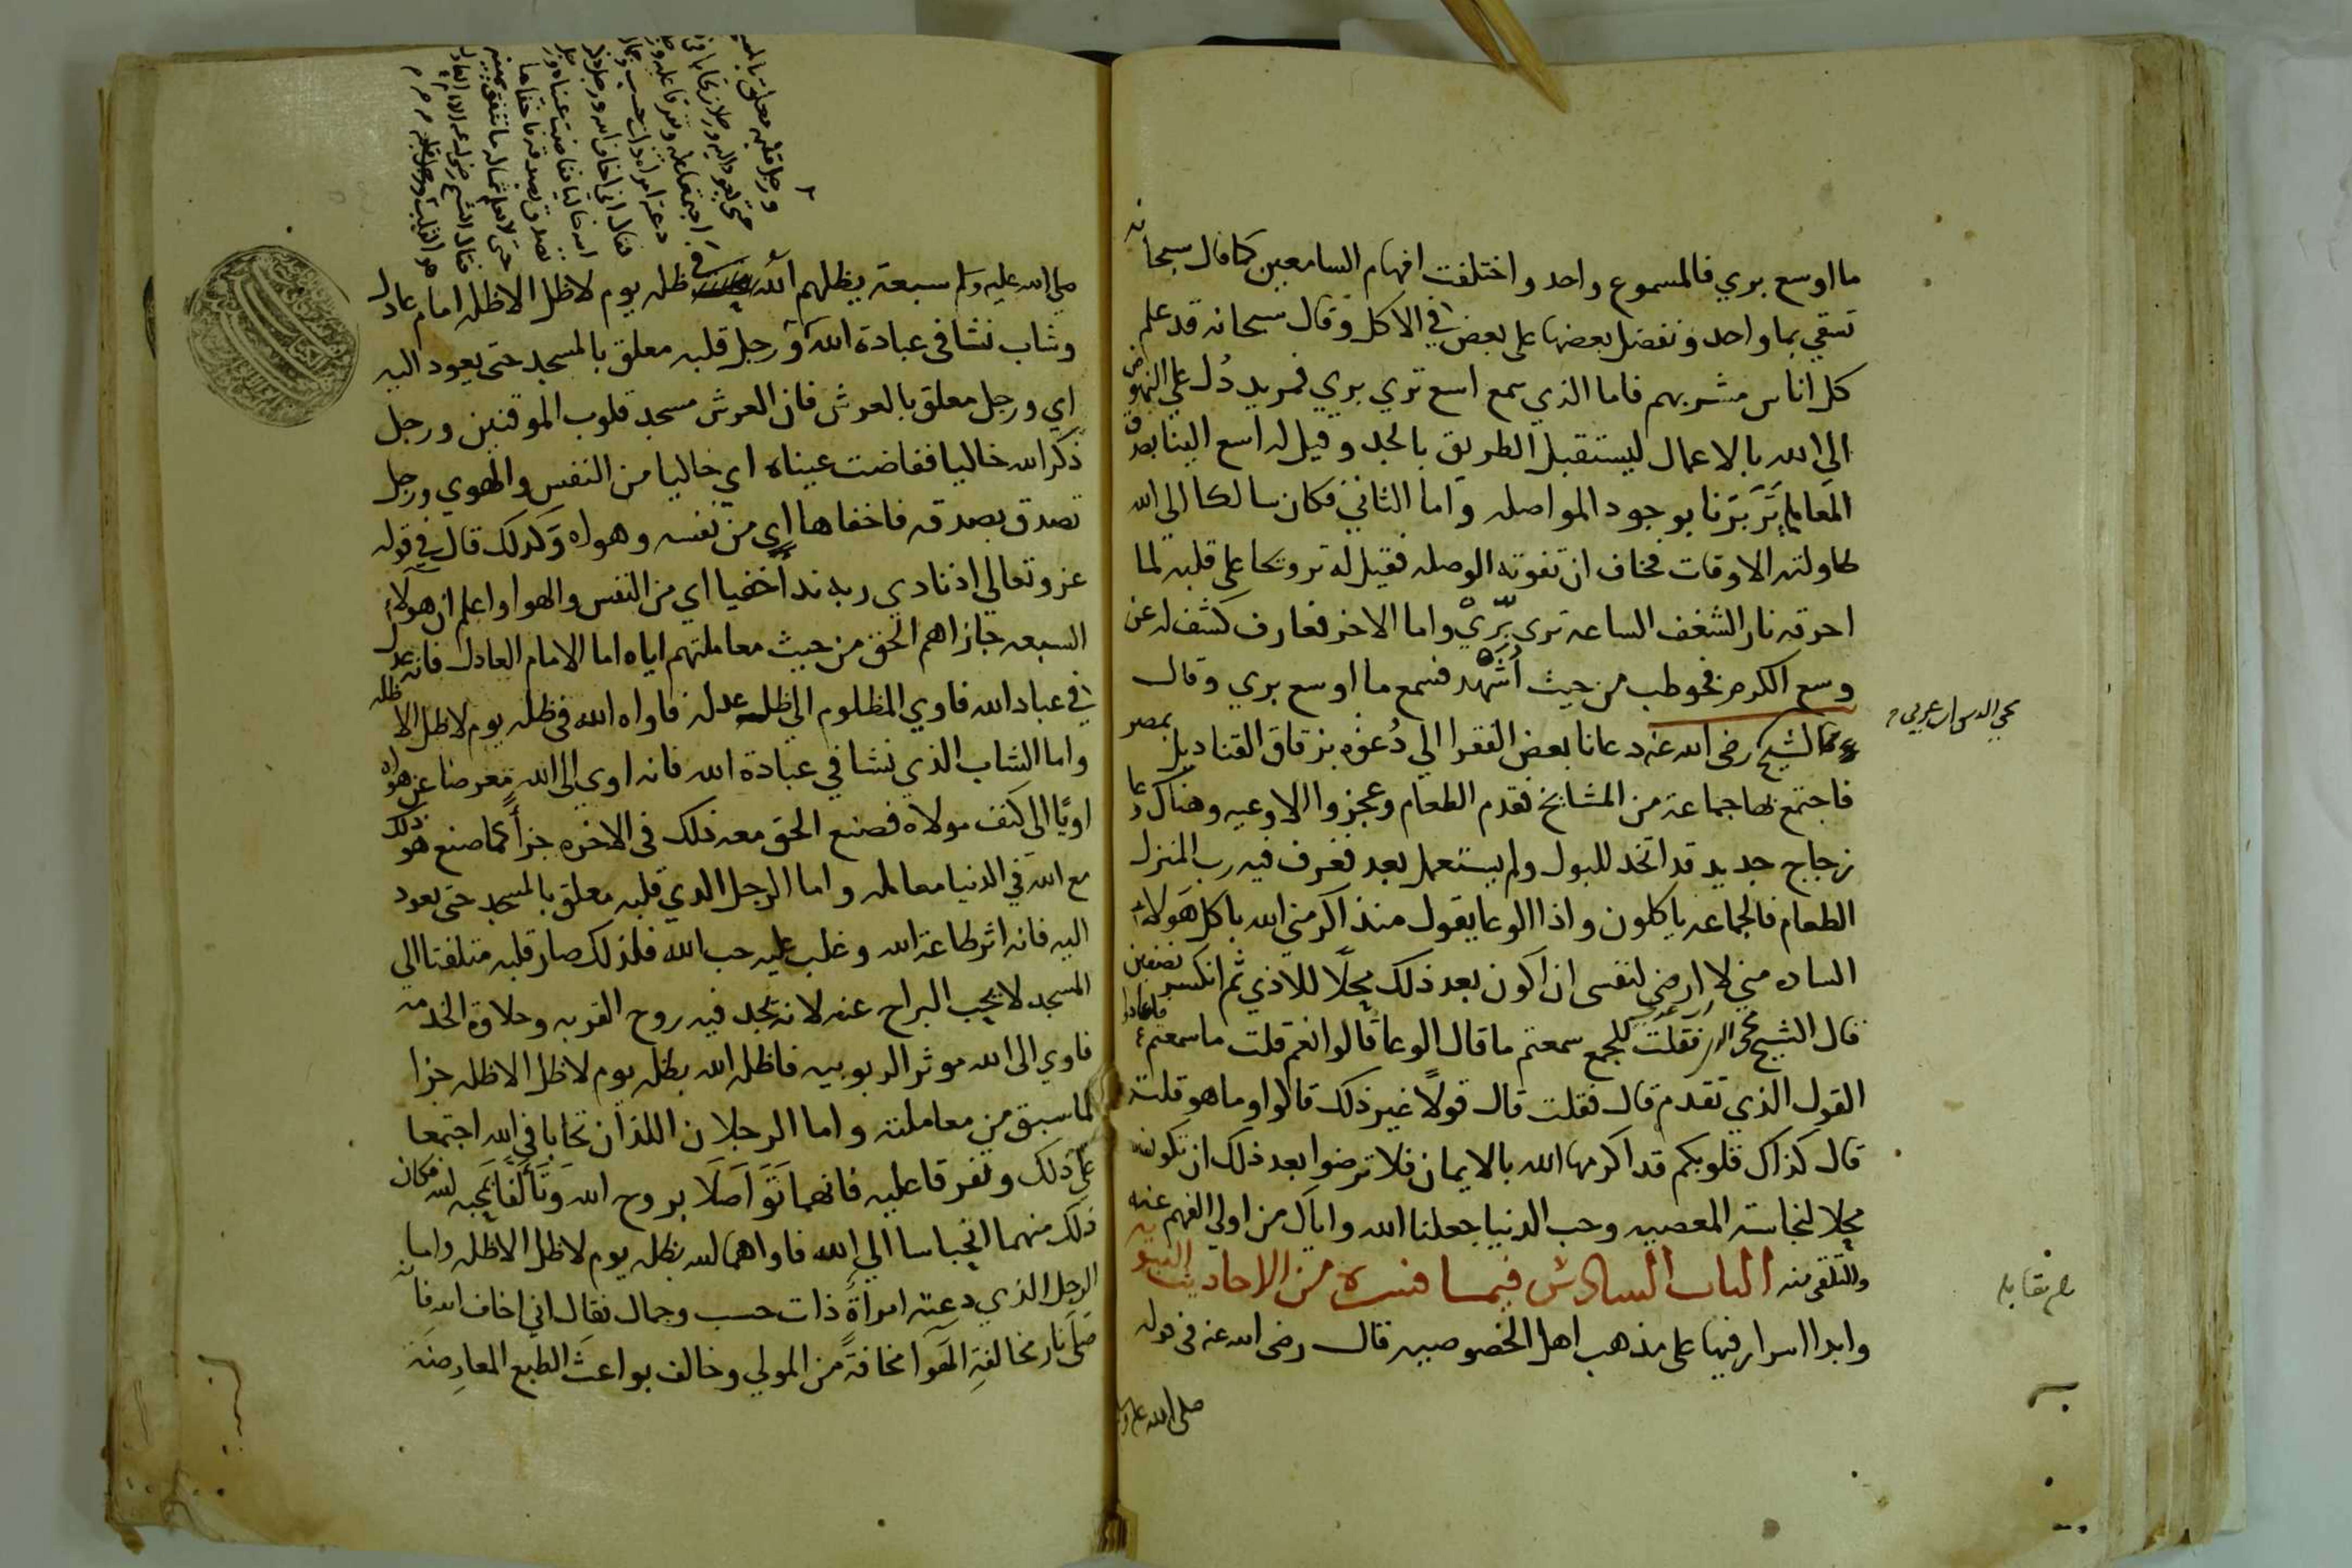 ما اوسع بري فالمسموع واحد واختلفت افهام السامعين كما قال سبحانه
تسقي بما واحد ونفضل بعضها على بعض في الاكل وقال سبحانه قد علم
كل اناس مشربهم فاما الذي سمع اسع تري بري فمريد دُل علي النهوض
الى الله بالاعمال ليستقبل الطريق بالجد وقيل له اسع الينا بصدق
المعامله تَرَ بِرّنا بوجود المواصله واما الثاني فكان سالكا الى الله
طاولته الاوقات فخاف ان تفوته الوصله فقيل له تروحا على قلبه لما
احرقه نار الشغف الساعه تري بِرّيْ واما الاخر فعارف كشف له عن
وسع الكرم فخوطب من حيث اُشهد فسمع ما اوسع بري وقال
الشيخ رضى الله عنه دعانا بعض الفقرا الي دُعوه بزقاق القناديل بمصر
محي الدين ابن عربي
فاجتمع بها جماعة من المشايخ فقدم الطعام وعجزوا الاوعيه وهناك وعا
زجاج جديد قد اتخد للبول ولم يستعمل بعد فغرف فيه رب المنزل
الطعام فالجماعه ياكلون واذا الوعا يقول منذ اكرمني الله باكل هَولاء
الساده مني لا ارضي لنفسى ان اكون بعد ذلك محِلّا للاذي ثم انكسر نصفين
قال الشيخ محي الدين فقلت للجمع سمعتم ما قال الوعا قالوا نعم قلت ما سمعتم فاعادوا
القول الذي تقدم قال فقلت قال قولًا غير ذلك قالوا وما هو قلت
قال كذاك قلوبكم قد اكرمها الله بالايمان فلا ترضوا بعد ذلك ان تكون
محِلا لنجاسة المعصيه وحب الدنيا جعلنا الله واياك من اولي الفهم عنه
والتلقى منه الباب السادس فيما فسره من الاحاديث النبويه
وابدا اسرار فيها على مذهب اهل الخصوصيه قال رضى الله عنه فى قوله
بلغ مقابله
صلى الله عليه وسلم
ورجل قلبه معلق بالمسجد
حتى يعود اليه ورجلان تحابا في
اجتمعا عليه وتفرقا عليه ورجل
دعته امراه ذات حسب وجمال
فقال اني اخاف الله ورجل ذكر
الله خاليا ففاضت عيناه ورجل
تصدق بصدقه فاخفاها
حتى لا تعلم شماله ما تنفق يمينه
صلى الله عليه وسلم سبعة يظلهم الله في ظله يوم لا ظل الا ظله امام عادل
وشاب نشا فى عبادة الله ورجل قلبه معلق بالمسجد حتى يعود اليه
اي ورجل معلق بالعرش فان العرش مسجد قلوب الموقنين ورجل
ذكر الله خاليا ففاضت عيناه اي خاليا من النفس والهوي ورجل
تصدق بصدقه فاخفاها اي من نفسه وهواه وكدلك قال في قوله
عز وتعالي اذ نادي ربه نداً خفيا اي من النفس والهوا واعلم ان هولاء
السبعه جازاهم الحق من حيث معاملتهم اياه اما الامام العادل فانه عدل
في عباد الله فاوي المظلوم الي ظل عدله فاواه الله فى ظله يوم لا ظل الا ظله
واما الشاب الذي نشا في عبادة الله فانه اوى الى الله معرضا عن هواه
اويًا الى كنف مولاه فصنع الحق معه ذلك فى الاخره جزأً كما صنع هو ذلك
مع الله في الدنيا معامله واما الرجل الدي قلبه معلق بالمسجد حتى يعود
اليه فانه اثر طاعة الله وغلب عليه حب الله فلذلك صار قلبه متلفتا الي
المسجد لا يحِب البراح عنه لانه يجد فيه روح القربه وحلاوة الخدمه
فاوي الى الله موثر الربوبيه فاظله الله بظله يوم لا ظل الا ظله جزا
لما سبق من معاملته واما الرجلان اللذان تحابا في الله اجتمعا
علي ذلك وتفرقا عليه فانهما تَوَاصَلَا بروح الله وتَأَلّفَا بمحبه لله فكان
ذلك منهما انحياسا الي الله فاواهما الله بظله يوم لا ظل الا ظله واما
الرجل الذي دعته امراةً ذات حسب وجمال فقال اني اخاف الله فانه
صَلَى نار مخالفةِ الهَوَا مخافةً من المولي وخالف بواعث الطبع المعارِضَة